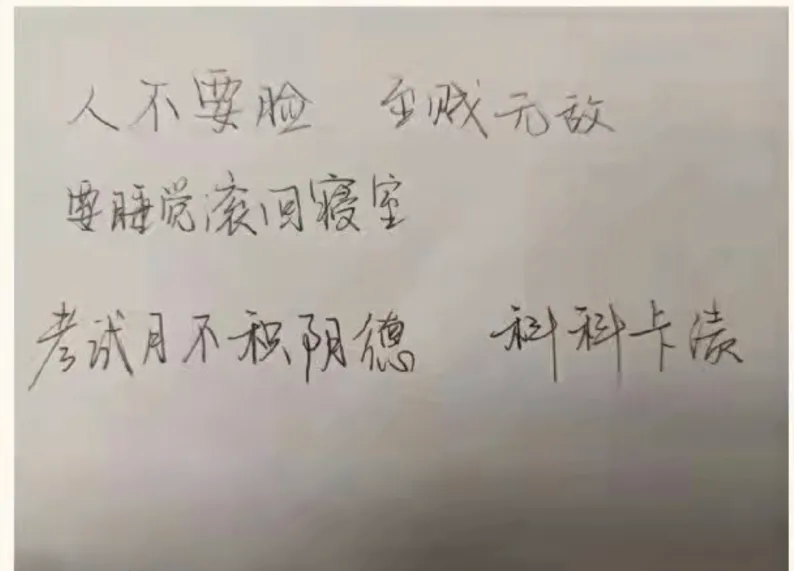 人不要脸 至贱无敌
要睡觉滚回寝室
考试月不积阴德 科科卡渍